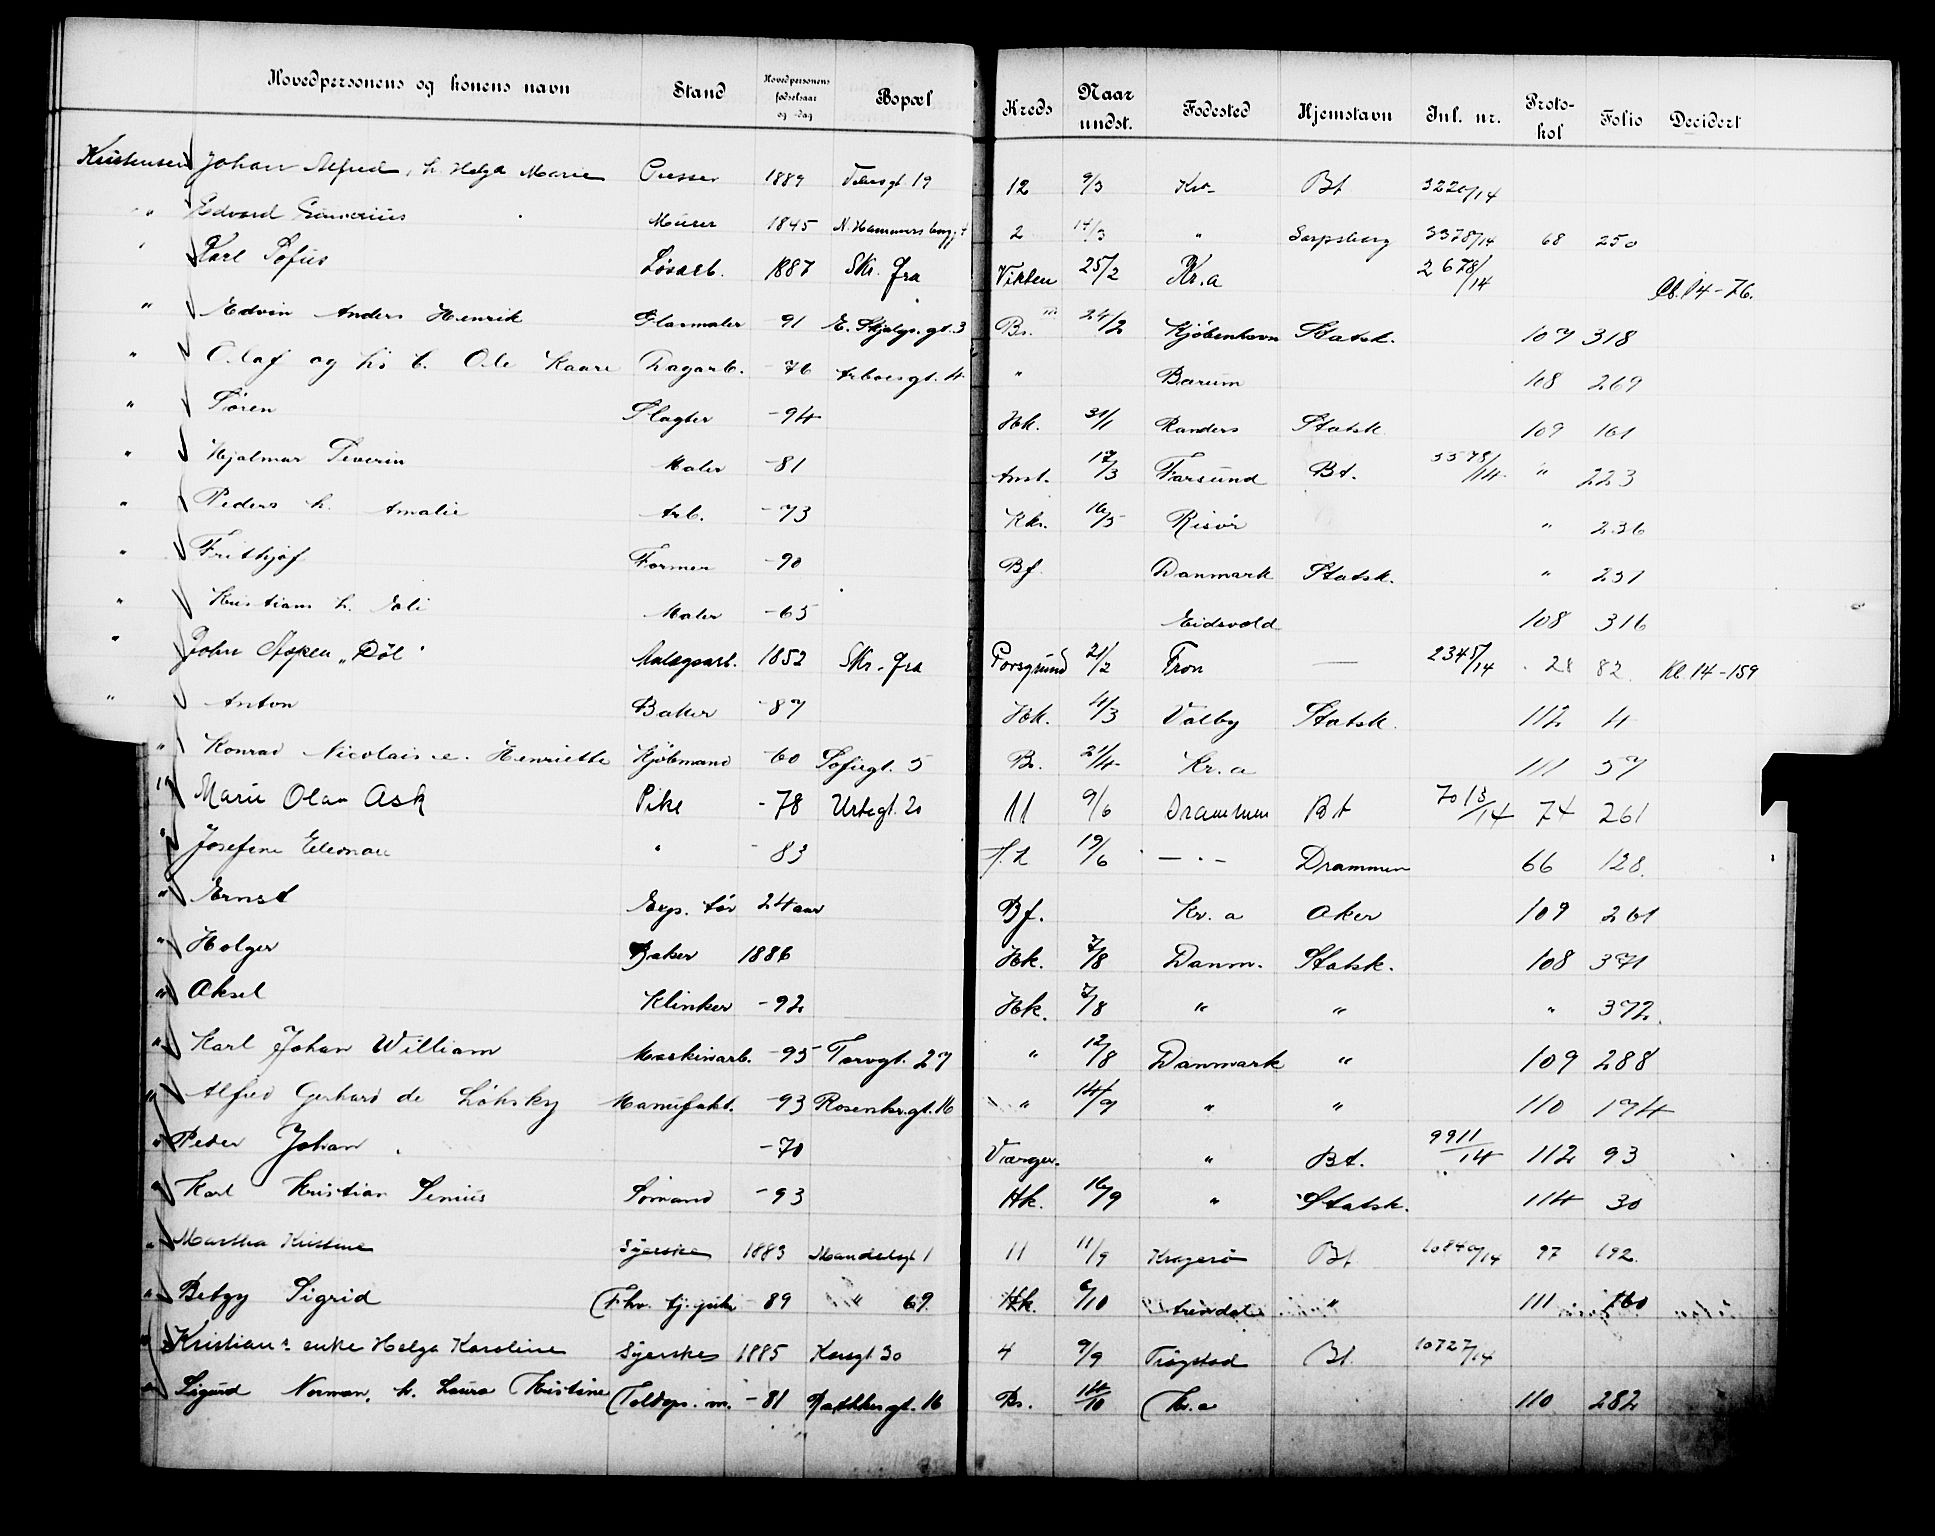 Hovedpersonens og konens navn | Stand | Hovedpersonens fødselsaar og -dag | Bopæl | Kreds | Naar undst. | Fødested | Hjemstavn | Inl. nr. | Protokol | Folio | Decidert
Kristensen Johan Alfred, h. Helga Marie | Presser | 1889 | gt 19 | 12 | 9/3 | Kra | Bt | 3220/14
" Edvard | Murer | 1845 | N. Hammersborggt | 2 | 14/3 | " | Sarpsborg | 3378/14 | 68 | 250
" Karl Sofus | Løsarb. | 1887 | Skr. fra | Vikten | 25/2 | Kr.a | | 2678/14 | | | Cb. 14-76.
" Edvin Anders Henrik | Glasmaler | -91 | E. Skjalgs. gt. 3 | Br. | 24/2 | Kjøbenhavn | Statsk. | | 109 | 318
" Olaf og hs b. Ole Kaare | Dagarb. | -76 | Arboesgt. 4 | " | | Bærum | | | 108 | 269
" Søren | Slagter | -94 | | Hk. | 31/1 | Randers | Statsk. | | 109 | 161
" Hjalmar Severin | Maler | -81 | | Amt. | 17/3 | Farsund | Bt. | 3578/14 | " | 223
" Peders h. Amalie | Arb. | -73 | | Kkr. | 16/5 | Risør | | | " | 236
" Frithjof | Former | -90 | | Bf. | | Danmark | Statsk. | | " | 231
" Kristians h. Eli | Maler | -65 | | | | Eidsvold | | | 108 | 316
" John Aspen "Døl" | Anlægsarb. | 1852 | Skr. fra | Porsgrund | 21/2 | Fron | — | 2345/14 | 28 | 82. | Kl. 14-159
" Anton | Baker | -87 | | Hk. | 4/3 | Valby | Statsk. | | 112 | 4
" Konrad Nicolais e. Henriette | Kjøbmand | -60 | Sofiegt. 5 | Br. | 21/4 | Kr.a | | | 111 | 57
" Marie Olava Ask | Pike | -78 | Urtegt. 20 | 11 | 9/6 | Drammen | Bt | 7013/14 | 74 | 261
" Josefine Eleonau | " | -83 | | f. l. | 19/6 | —"— | Drammen | | 66 | 128.
" Ernst | Exp. tør | 24 aar | | Bf. | | Kr. a | Aker | | 109 | 261
" Holger | Baker | 1886 | | Hk. | 7/8 | Danm. | Statsk. | | 108 | 371
" Aksel | Klinker | -92 | | Hk. | 7/8 | " | " | | " | 372.
" Karl Johan William | Maskinarb. | -95 | Torvgt. 27 | " | 12/8 | Danmark | " | | 109 | 288
" Alfred Gerhard de Løhsky | Manufakt. | -93 | Rosenkr.gt. 16 | " | 14/9 | " | " | | 110 | 174
" Peder Johan. | | -70 | | Værger. | | " | Bt. | 9911/14 | 112 | 93
" Karl Kristian Senius | Sømand | -93 | | Hk. | 16/9 | " | Statsk. | | 114 | 30
" Martha Kristine | Syerske | 1883 | Mandalsgt 1 | 11 | 11/9 | Kragerø | Bt | 10840/14 | 97 | 192.
" Betzy Sigrid | Fhv. tj. pike | -89 | " 69. | Hk. | 6/10 | Arendal | " | | 111 | 160
" Kristians enke Helga Karoline | Syerske | 1885 | Korsgt 30 | 4 | 9/9 | Trøgstad | Bt. | 10727/14
" Sigurd Norman, h. Laura Kristine | Toldops. m. | -81 | Dahlbergt. 16 | Br. | 14/10 | Kr.a | | | 110 | 282